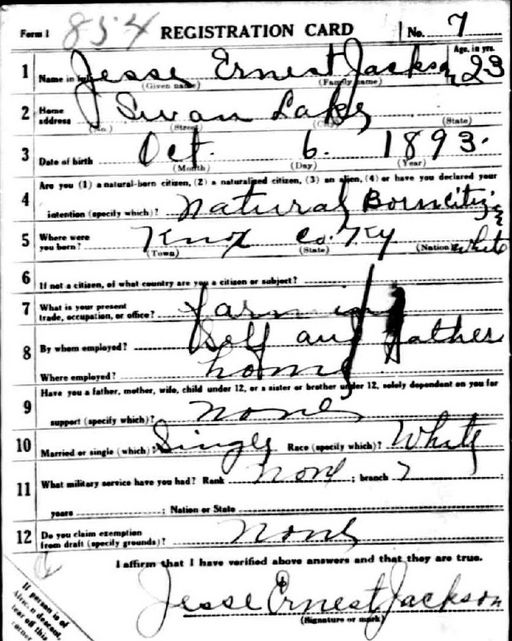 Form 1 854 REGISTRATION CARD No. 7
1 Name in full Jesse Ernest Jackson Age, in yrs. 23
(Given name) (Family name)
2 Home address Swan Lake
(No.) (Street) (City) (State)
3 Date of birth Oct. 6. 1893.
(Month) (Day) (Year)
Are you (1) a natural-born citizen, (2) a naturalized citizen, (3) an alien, (4) or have you declared your
4 intention (specify which)? Natural Born
5 Where were you born? Knox Co. Ky White
(Town) (State) (Nation)
6 If not a citizen, of what country are you a citizen or subject?
7 What is your present trade, occupation, or office? farming
8 By whom employed? Self and father
Where employed? home
Have you a father, mother, wife, child under 12, or a sister or brother under 12, solely dependent on you for
9 support (specify which)? none
10 Married or single (which)? Single Race (specify which)? White
11 What military service have you had? Rank none ; branch
years ; Nation or State
12 Do you claim exemption from draft (specify grounds)? None
I affirm that I have verified above answers and that they are true.
Jesse Ernest Jackson
(Signature or mark)
If person is of
African descent,